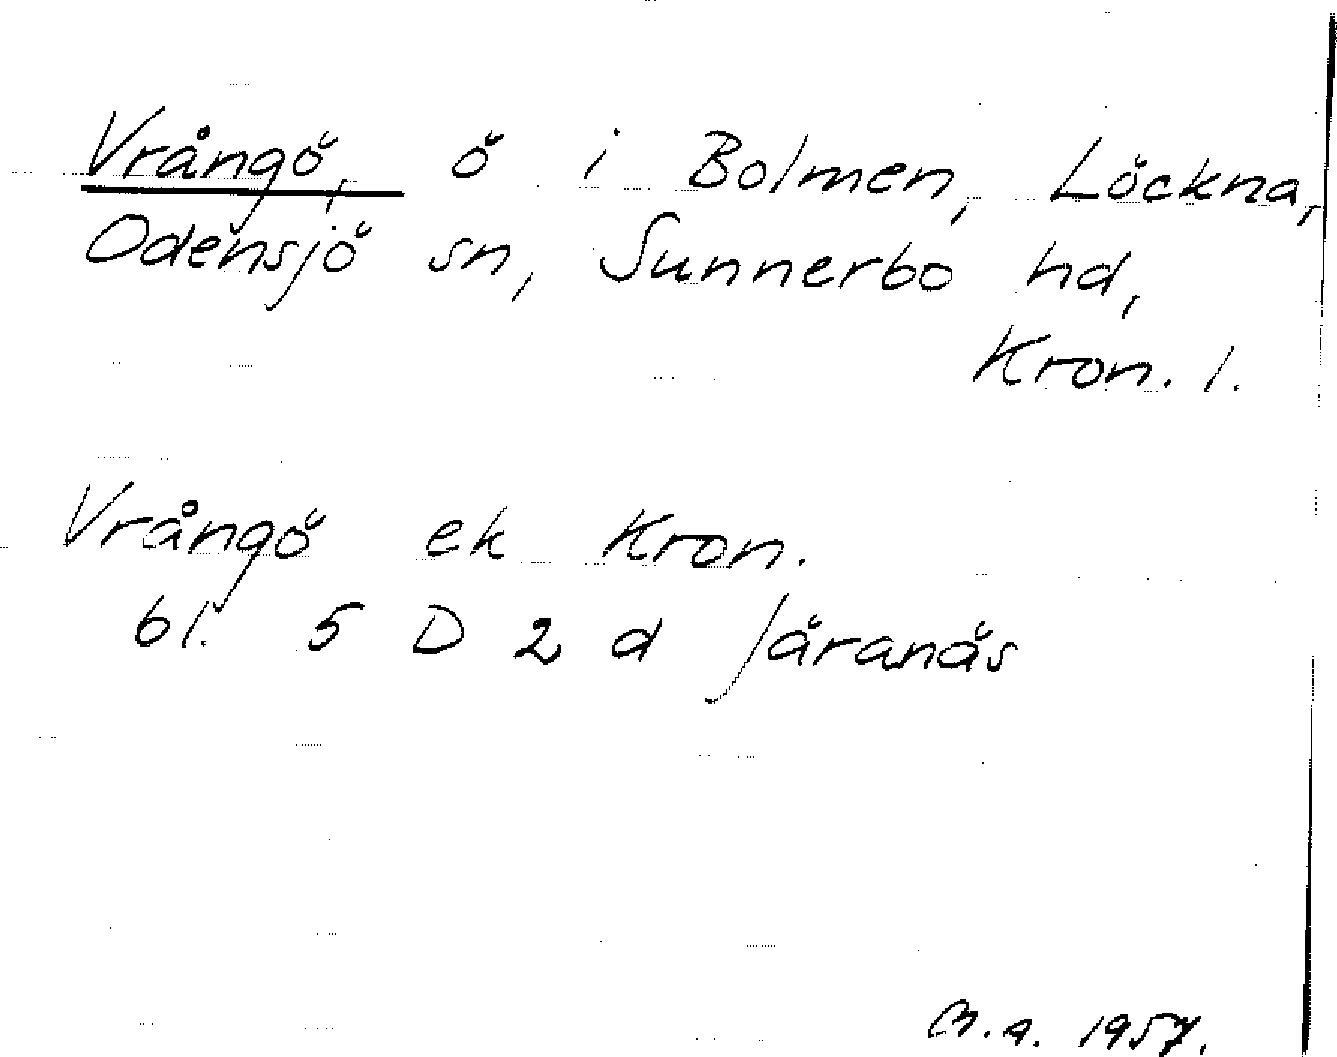 Vrångö, ö i Bolmen, Löckna,
Odensjö sn, Sunnerbo hd,
Kron. l.
Vrångö ek Kron.
bl. 5 D 2 d Järanäs
M.A. 1957.